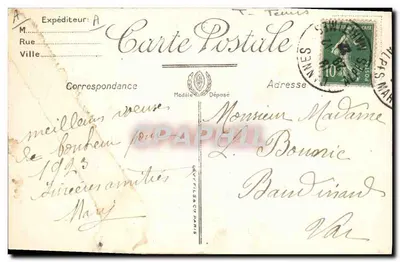 Expéditeur:
M
Rue
Ville
Carte Postale
Correspondance
Modèle Déposé
Adresse
10
meilleurs vœux
de bonheur pour
1923
Sincères amitiés
Mary
Monsieur Madame
L. Bonnic
Baudinard
Var